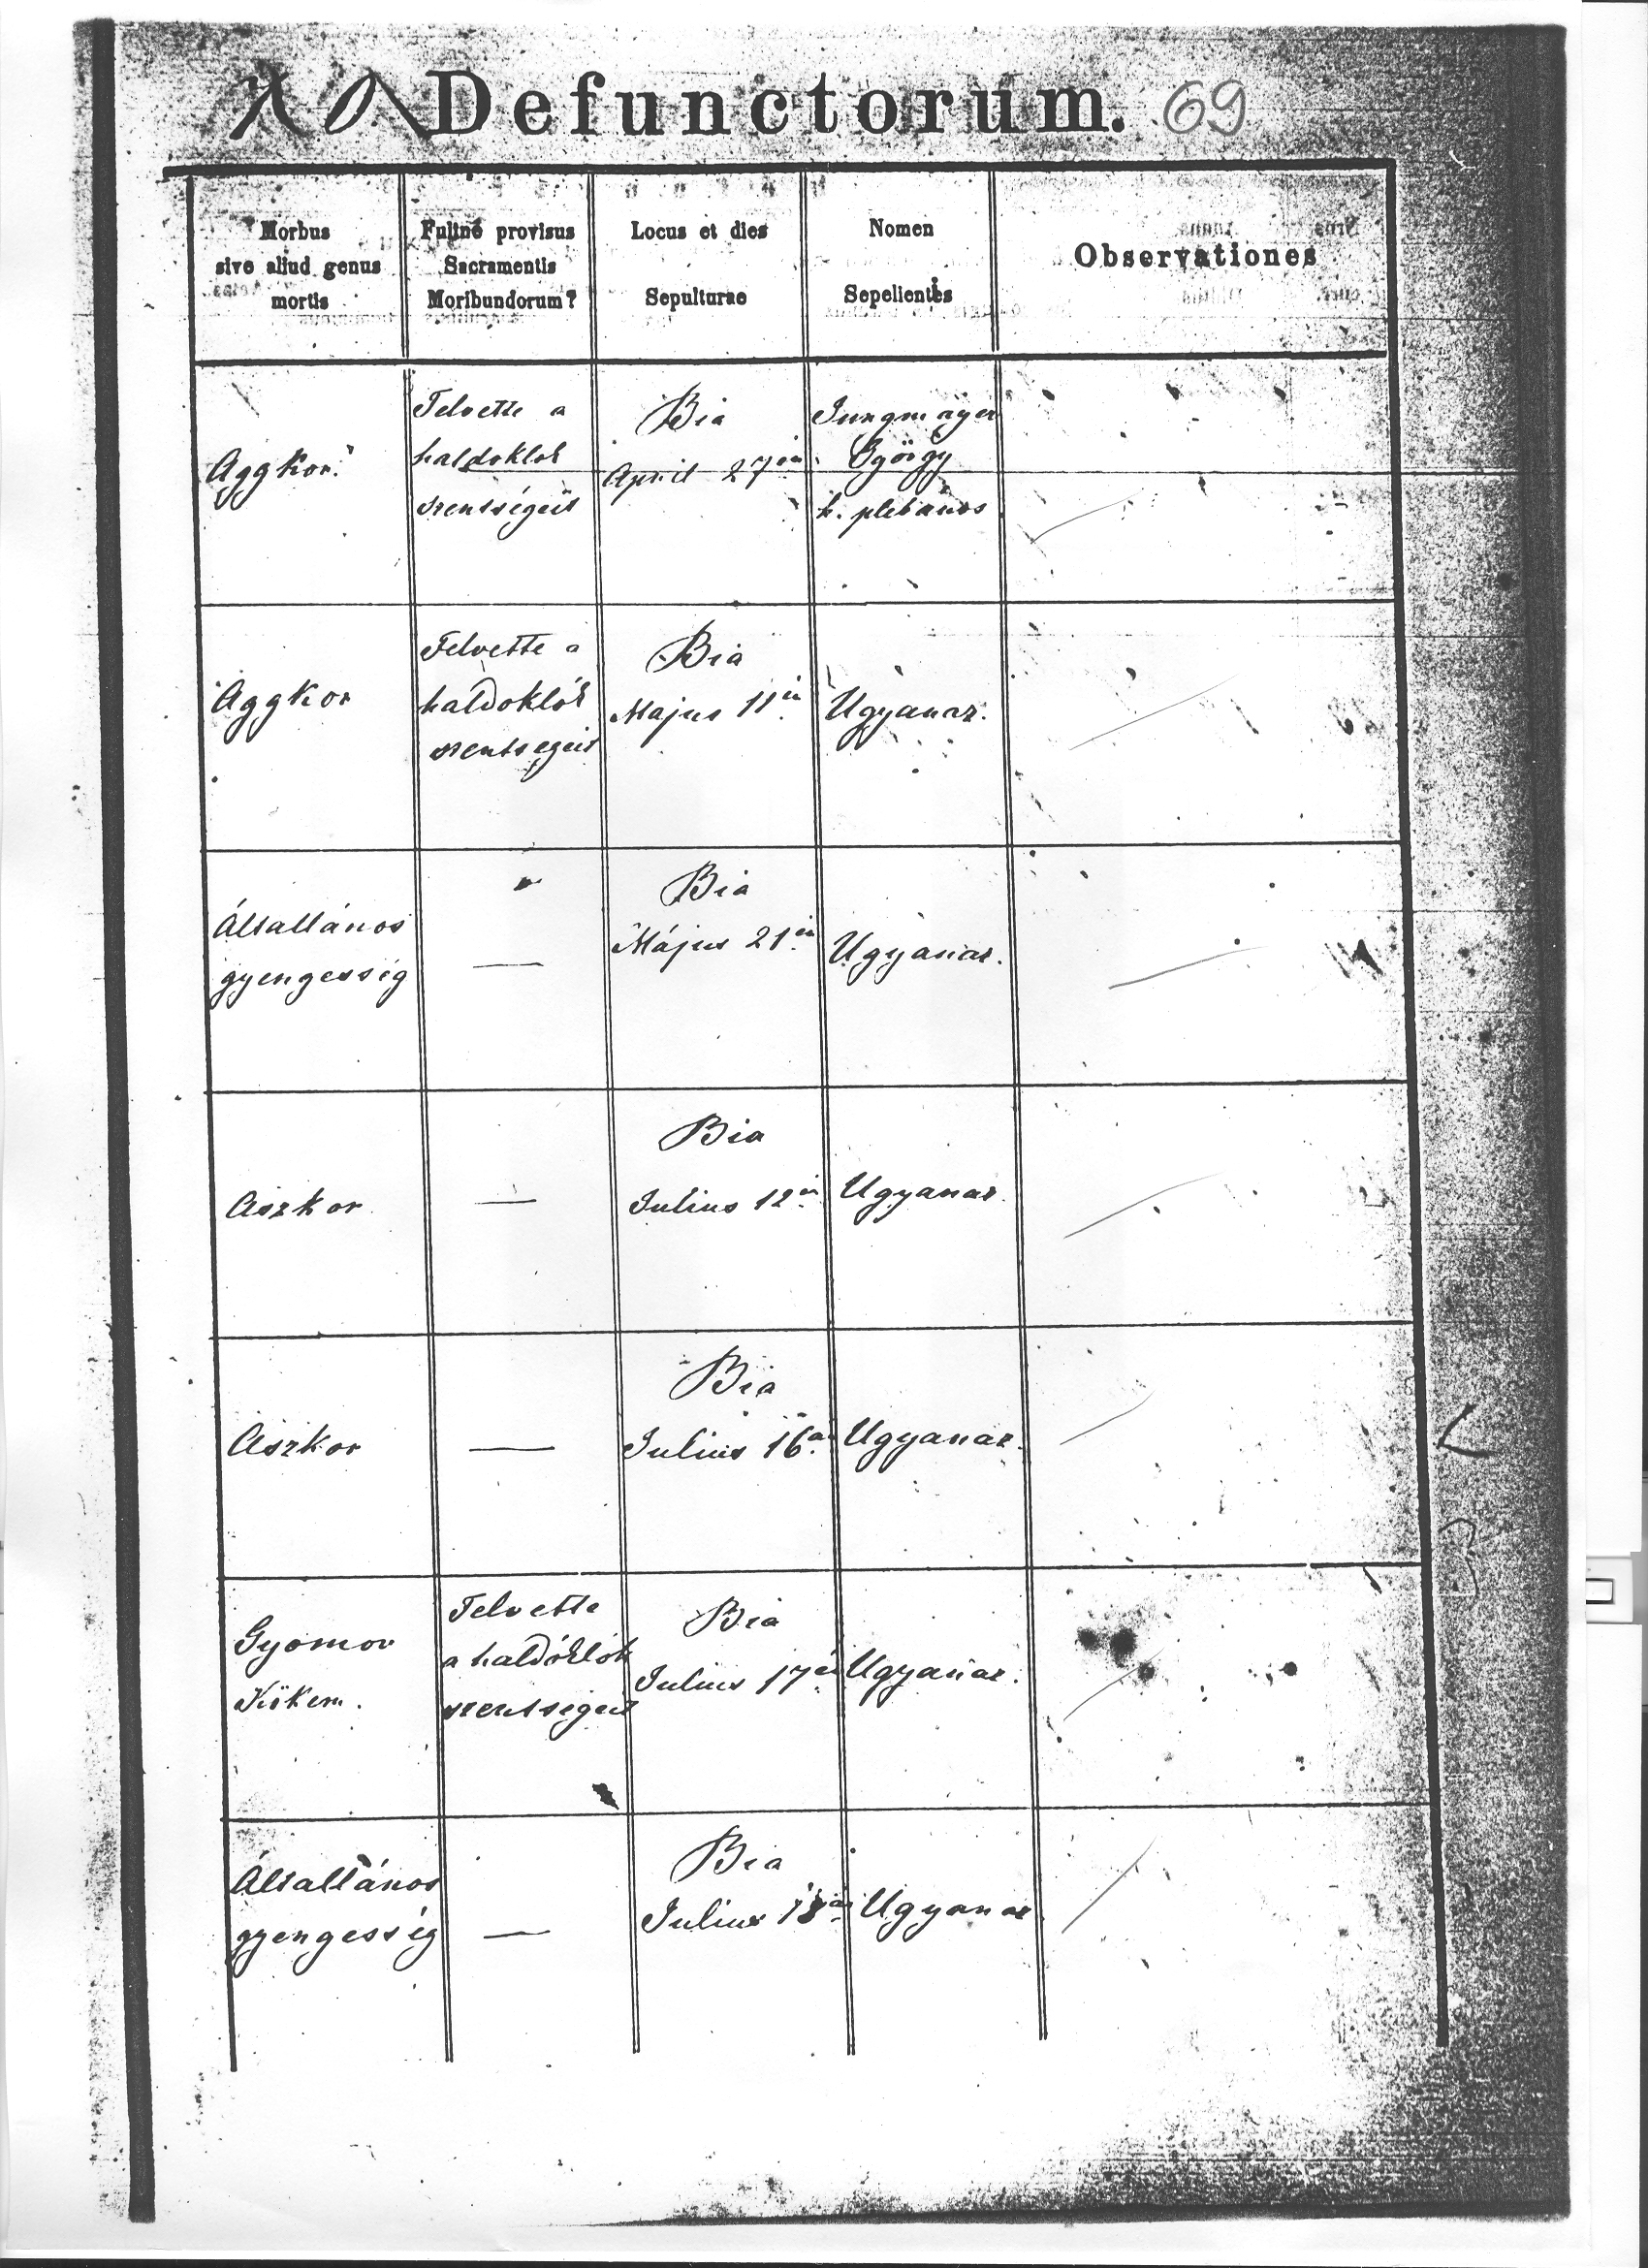 Defunctorum. 69
Morbus
sive aliud genus
mortis
Fuitne provisus
Sacramentis
Moribundorum?
Locus et dies
Sepulturae
Nomen
Sepelientis
Observationes
Aggkor.
Felvette a
haldoklok
szentségeit
Bia
April 27én
Jungmayer
György
h. plebános
Aggkor
Felvette a
haldoklók
szentsegeit
Bia
Majus 11én
Ugyanaz.
Általlános
gyengesség
—
Bia
Május 21én
Ugyanaz.
Aszkor
—
Bia
Julius 12én
Ugyanaz.
Aszkor
—
Bia
Julius 16án
Ugyanaz.
Gyomor
Felvette
a haldóklók
szentségeit
Bia
Julius 17én
Ugyanaz.
Általlános
gyengesség
—
Bia
Julius
Ugyanaz